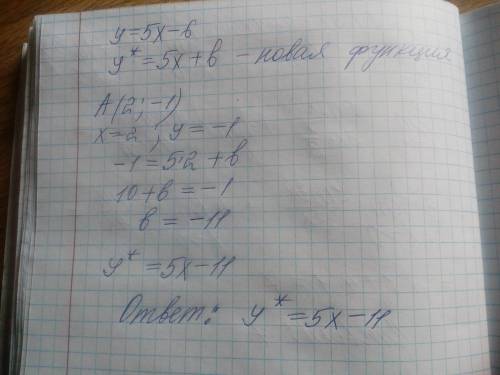 y=5x-6
y*=5x+b - новая функция
A(2; -1)
x=2; y=-1
-1=5·2+b
10+b=-1
b=-11
y*=5x-11
Ответ: y*=5x-11